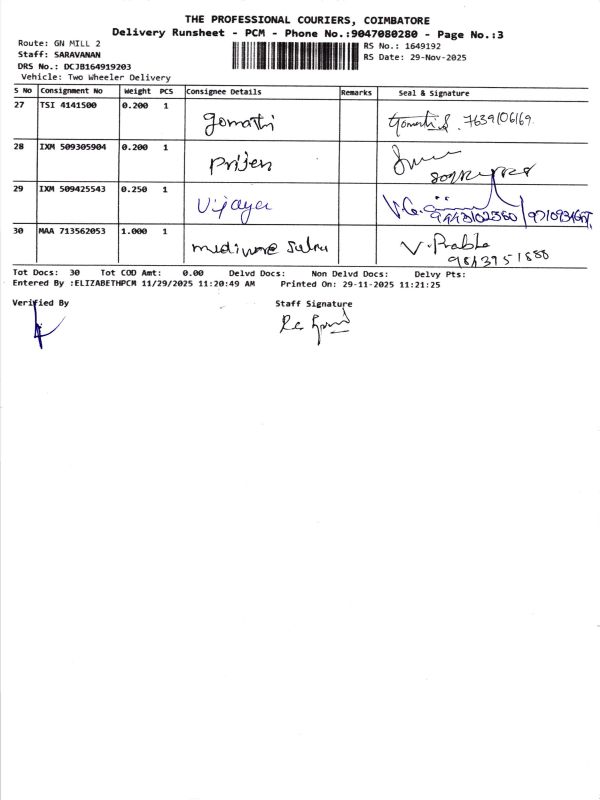 THE PROFESSIONAL COURIERS, COIMBATORE
Delivery Runsheet - PCM - Phone No.:9047080280 - Page No.:3
Route: GN MILL 2
Staff: SARAVANAN
DRS No.: DCJB164919203
Vehicle: Two Wheeler Delivery
RS No.: 1649192
RS Date: 29-Nov-2025
S No Consignment No Weight PCS Consignee Details Remarks Seal & Signature
27 TSI 4141500 0.200 1 gomathi 7639106169.
28 IXM 509305904 0.200 1
29 IXM 509425543 0.250 1 Vijaya
30 MAA 713562053 1.000 1 V. Prabha
Tot Docs: 30 Tot COD Amt: 0.00 Delvd Docs: Non Delvd Docs: Delvy Pts:
Entered By :ELIZABETHPCM 11/29/2025 11:20:49 AM Printed On: 29-11-2025 11:21:25
Verified By Staff Signature